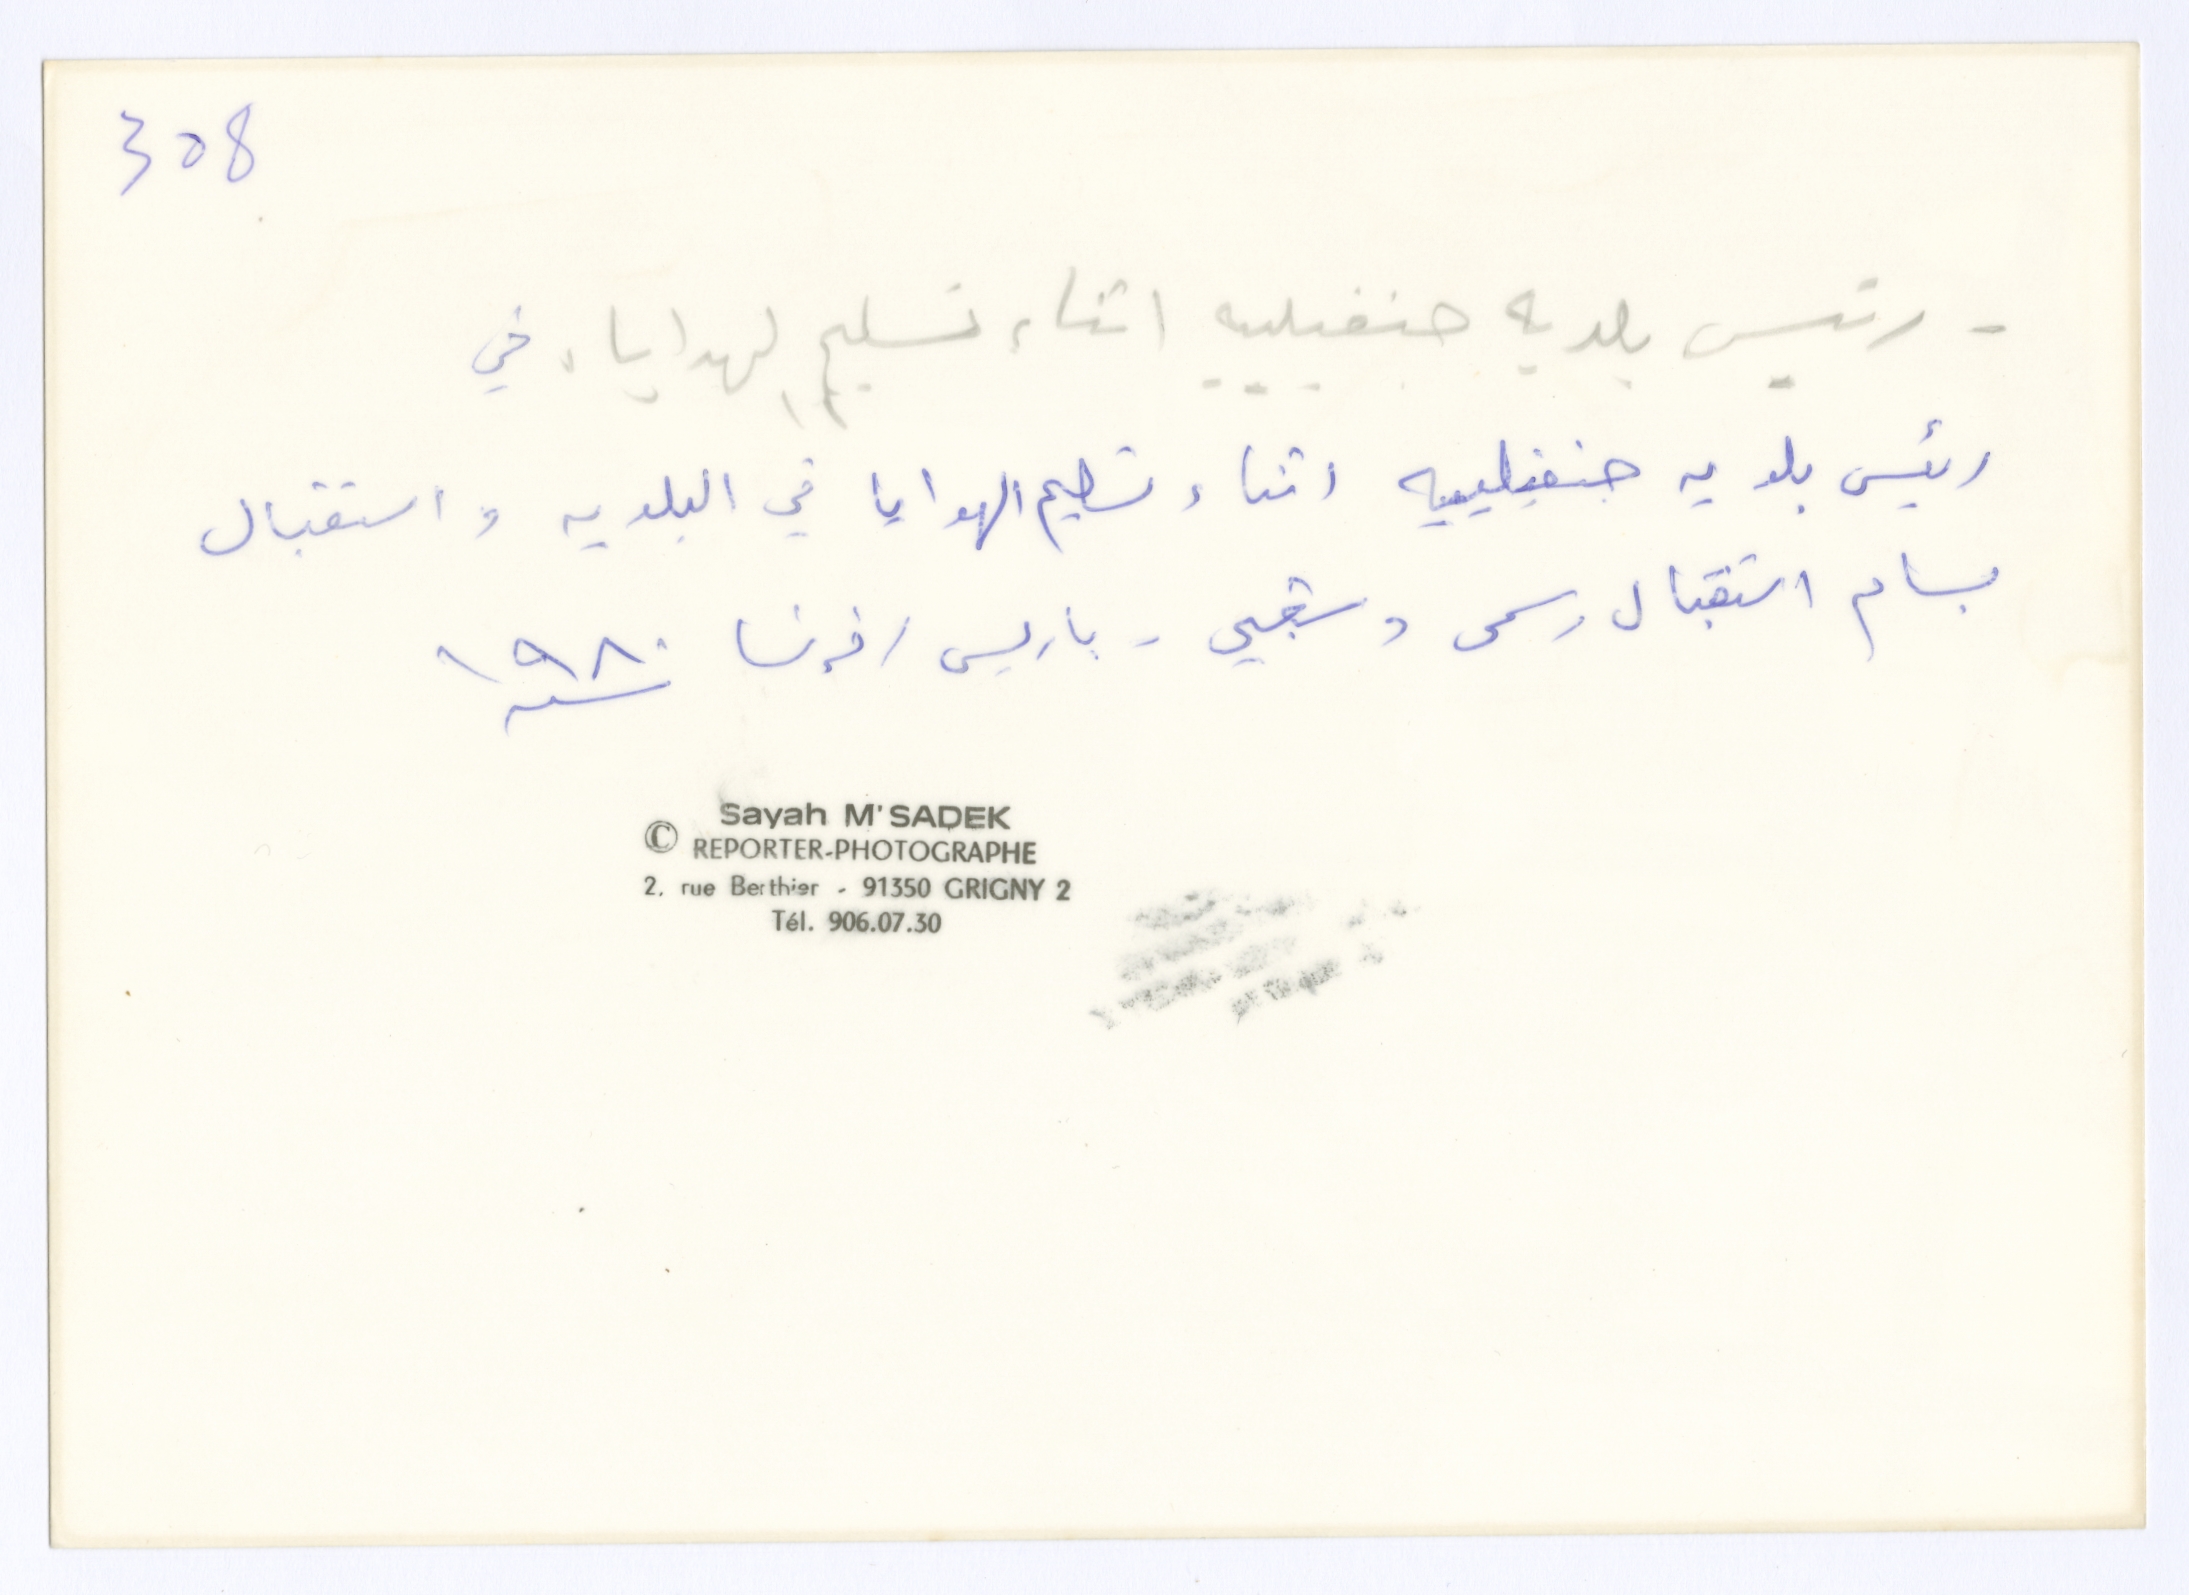 308
- رئيس بلديه جنفيلييه اثناء تسليم الهدايا، في
رئيس بلديه جنفيلييه اثناء تسليم الهدايا في البلديه و استقبال
بسام استقبال رسمي و شعبي - باريس / فرنسا ١٩٨٠
سنه
Sayah M'SADEK
© REPORTER-PHOTOGRAPHE
2, rue Berthier - 91350 GRIGNY 2
Tél. 906.07.30